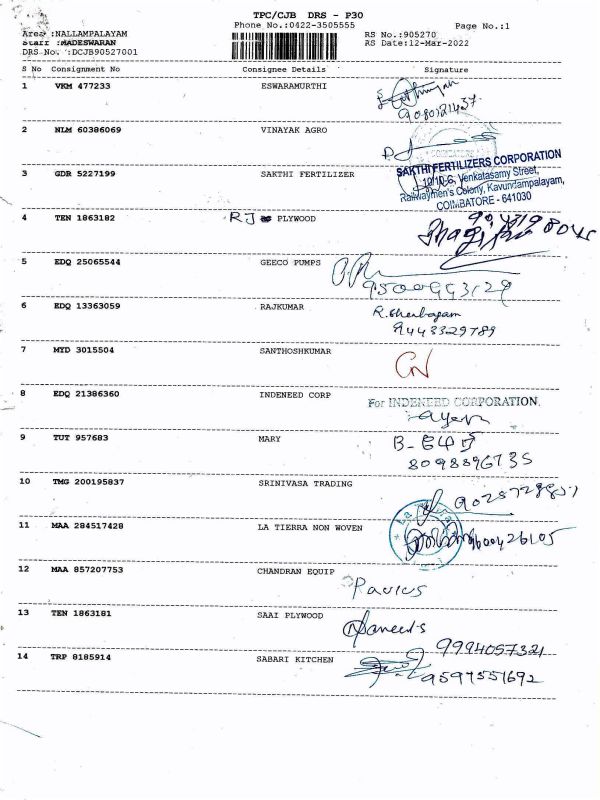 TPC/CJB DRS - P30
Phone No.:0422-3505555 Page No.:1
Area :NALLAMPALAYAM RS No.:905270
Staff :MADESWARAN RS Date:12-Mar-2022
DRS No. :DCJB90527001
S No Consignment No Consignee Details Signature
1 VKM 477233 ESWARAMURTHI
9080121437
2 NLM 60386069 VINAYAK AGRO
3 GDR 5227199 SAKTHI FERTILIZER
SAKTHI FERTILIZERS CORPORATION
12/10-6, Venkatasamy Street,
Railwaymen's Colony, Kavundampalayam,
COIMBATORE - 641030
4 TEN 1863182 RJ PLYWOOD
5 EDQ 25065544 GEECO PUMPS
9500993129
6 EDQ 13363059 RAJKUMAR R. Shenbagam
9443329789
7 MYD 3015504 SANTHOSHKUMAR
8 EDQ 21386360 INDENEED CORP For INDENEED CORPORATION.
9 TUT 957683 MARY
8098896735
10 TMG 200195837 SRINIVASA TRADING
11 MAA 284517428 LA TIERRA NON WOVEN 9600426105
12 MAA 857207753 CHANDRAN EQUIP
13 TEN 1863181 SAAI PLYWOOD
9994057321
14 TRP 8185914 SABARI KITCHEN
9597551692